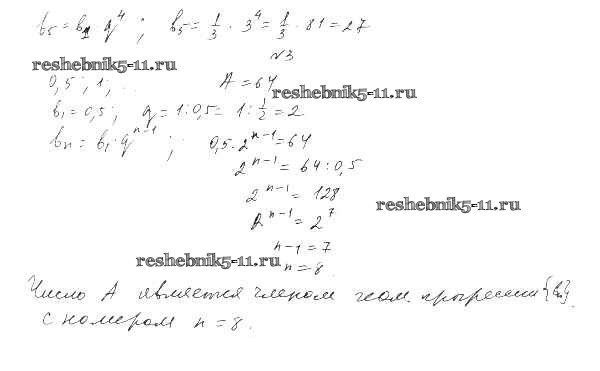 b₅ = b₁ q⁴ ; b₅ = 1/3 · 3⁴ = 1/3 · 81 = 27
№3
reshebnik5-11.ru
0,5 ; 1 ; ... A = 64
reshebnik5-11.ru
b₁ = 0,5 ; q = 1 : 0,5 = 1 : 1/2 = 2
bn = b₁ · q^(n-1) ; 0,5 · 2^(n-1) = 64
2^(n-1) = 64 : 0,5
2^(n-1) = 128
reshebnik5-11.ru
2^(n-1) = 2⁷
n-1 = 7
reshebnik5-11.ru
n = 8
Число A является членом геом. прогрессии {bn}
с номером n = 8.